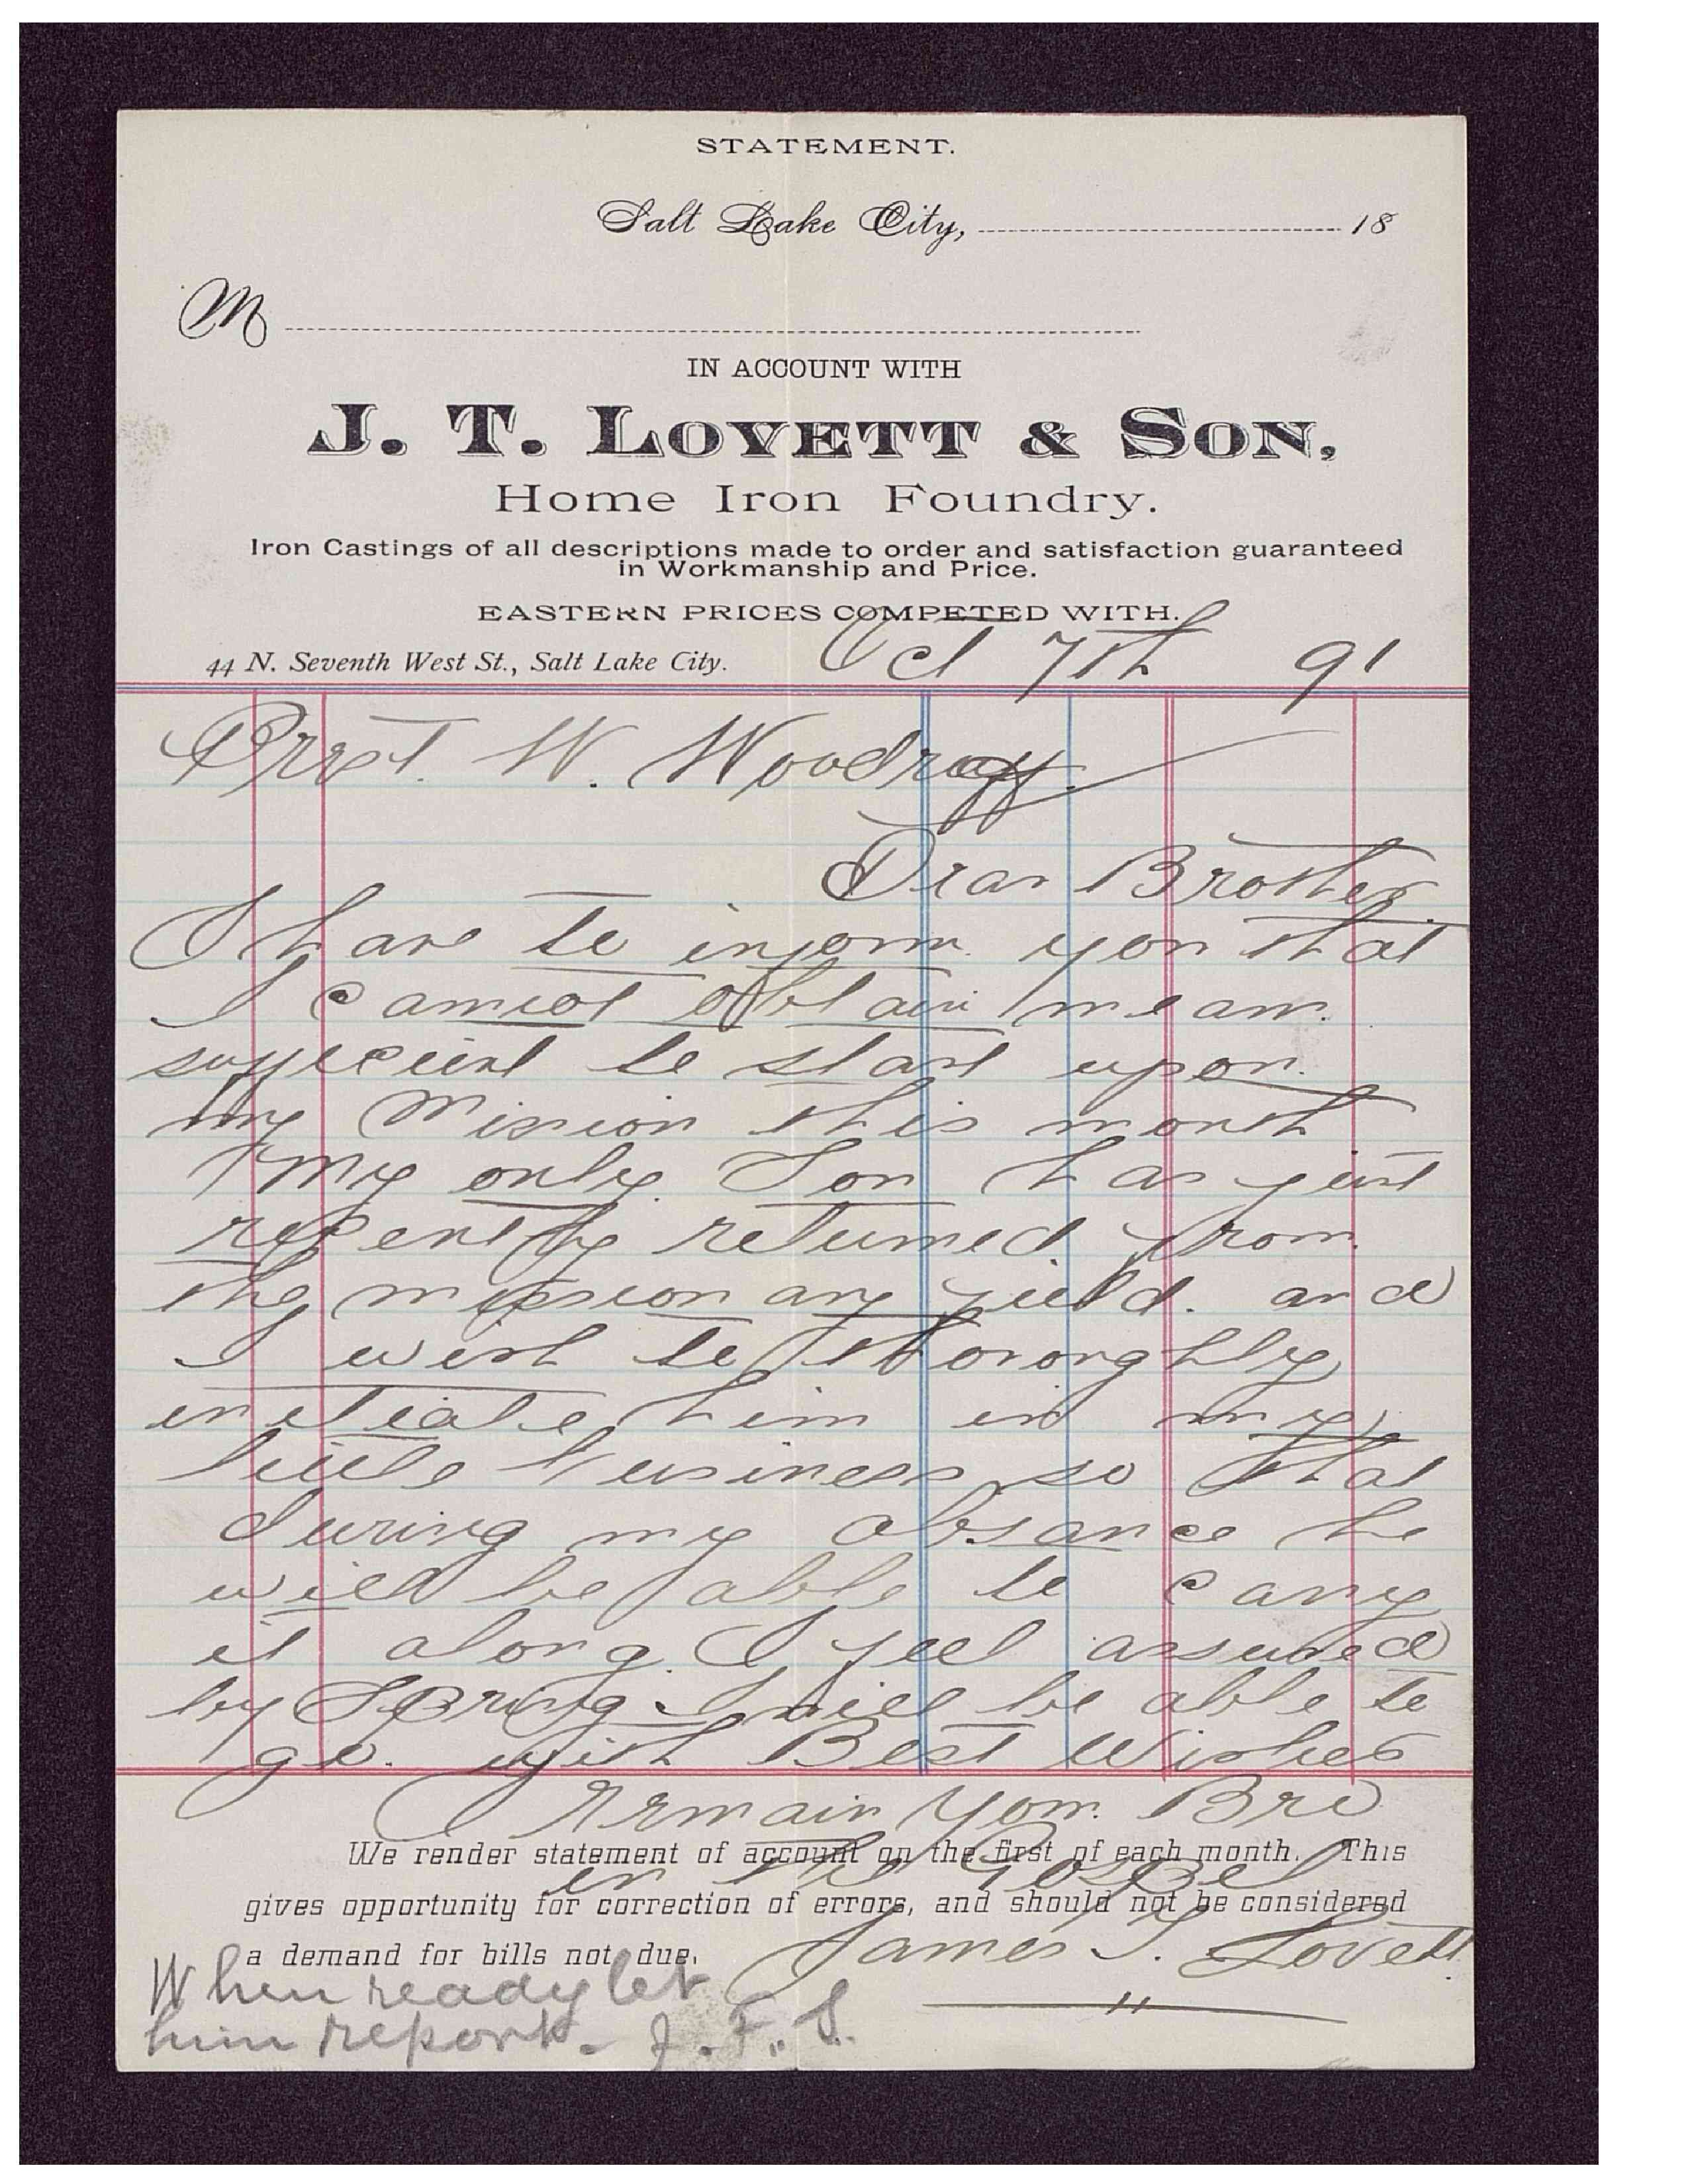 STATEMENT.
Salt Lake City, 18
M
IN ACCOUNT WITH
J. T. LOVETT & SON,
Home Iron Foundry.
Iron Castings of all descriptions made to order and satisfaction guaranteed
in Workmanship and Price.
EASTERN PRICES COMPETED WITH.
44 N. Seventh West St., Salt Lake City. Oct 7th 91
Prest. W. Woodruff
Dear Brother.
I have to inform you that
I cannot obtain mean
sufficient to start upon
my Mission this month
My only Son has just
recently returned from
the missionary field. and
I wish to thoroughly
initiate him in my
little business so that
during my absance he
will be able to carry
it along. I feel assured
by Spring I will be able to
go. with Best Wishes
I remain your Bro
in the Gospel
James T. Lovett
We render statement of account on the first of each month. This
gives opportunity for correction of errors, and should not be considered
a demand for bills not due.
When ready let
him report. J. F. S.